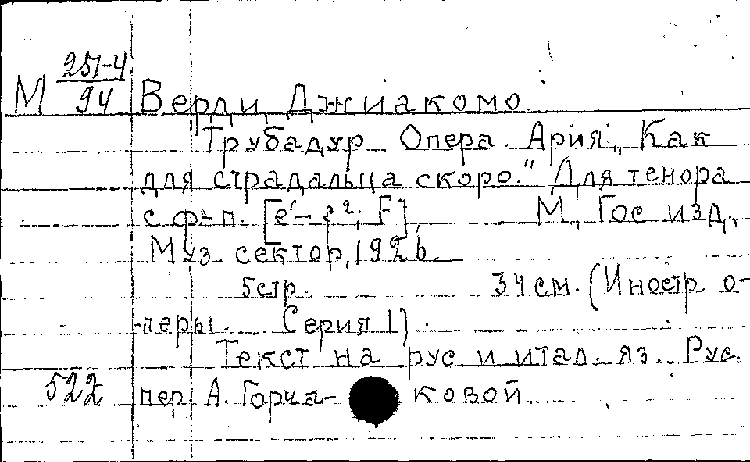 М 251-4/94 Верди, Джиакомо
Трубадур. Опера. Ария „Как
для страдальца скоро." Для тенора
с ф-п. [e¹-g²; F]. М, Гос изд,
Муз. сектор, 1926.
5 стр. 34 см. (Иностр о-
перы. Серия 1)
Текст на рус и итал. яз. Рус.
522 пер. А. Горча- ковой